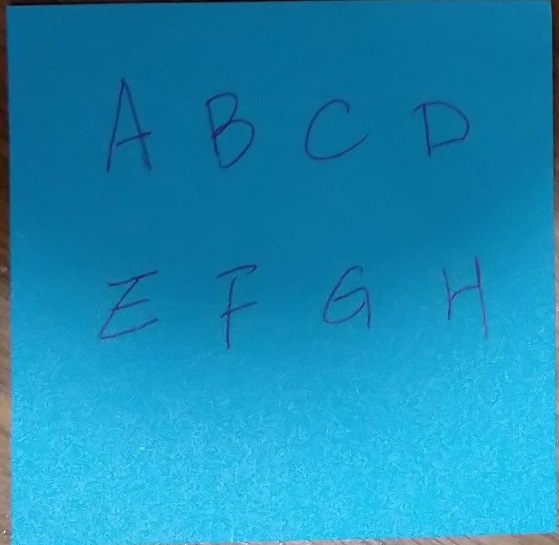 A B C D
E F G H